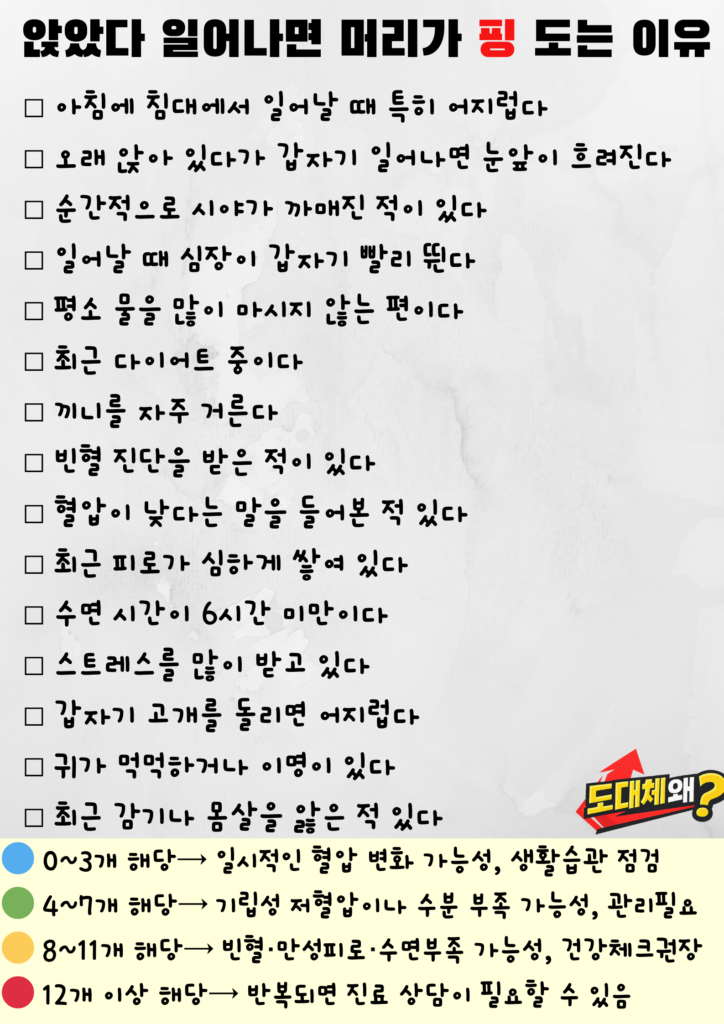 앉았다 일어나면 머리가 핑 도는 이유
□ 아침에 침대에서 일어날 때 특히 어지럽다
□ 오래 앉아 있다가 갑자기 일어나면 눈앞이 흐려진다
□ 순간적으로 시야가 까매진 적이 있다
□ 일어날 때 심장이 갑자기 빨리 뛴다
□ 평소 물을 많이 마시지 않는 편이다
□ 최근 다이어트 중이다
□ 끼니를 자주 거른다
□ 빈혈 진단을 받은 적이 있다
□ 혈압이 낮다는 말을 들어본 적 있다
□ 최근 피로가 심하게 쌓여 있다
□ 수면 시간이 6시간 미만이다
□ 스트레스를 많이 받고 있다
□ 갑자기 고개를 돌리면 어지럽다
□ 귀가 먹먹하거나 이명이 있다
□ 최근 감기나 몸살을 앓은 적 있다
도대체왜?
0~3개 해당→ 일시적인 혈압 변화 가능성, 생활습관 점검
4~7개 해당→ 기립성 저혈압이나 수분 부족 가능성, 관리필요
8~11개 해당→ 빈혈·만성피로·수면부족 가능성, 건강체크권장
12개 이상 해당→ 반복되면 진료 상담이 필요할 수 있음